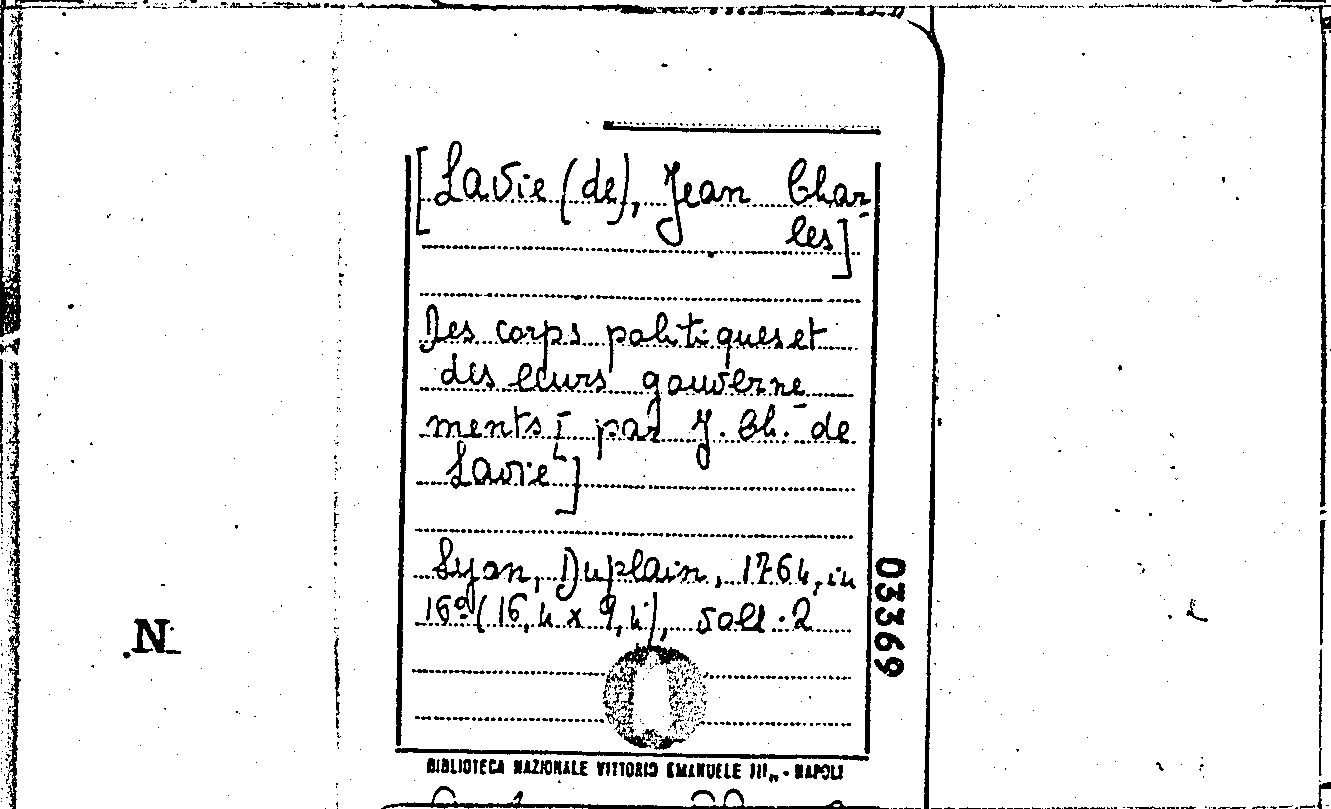 [Lavie (de), Jean Char-
les]
Des corps politiques et
des leurs gouverne-
ments [par J. Ch. de
Lavie]
Lyon, Duplain, 1764, in
16º (16,4 x 9,4), voll. 2
03369
N
BIBLIOTECA NAZIONALE VITTORIO EMANUELE III„ - NAPOLI